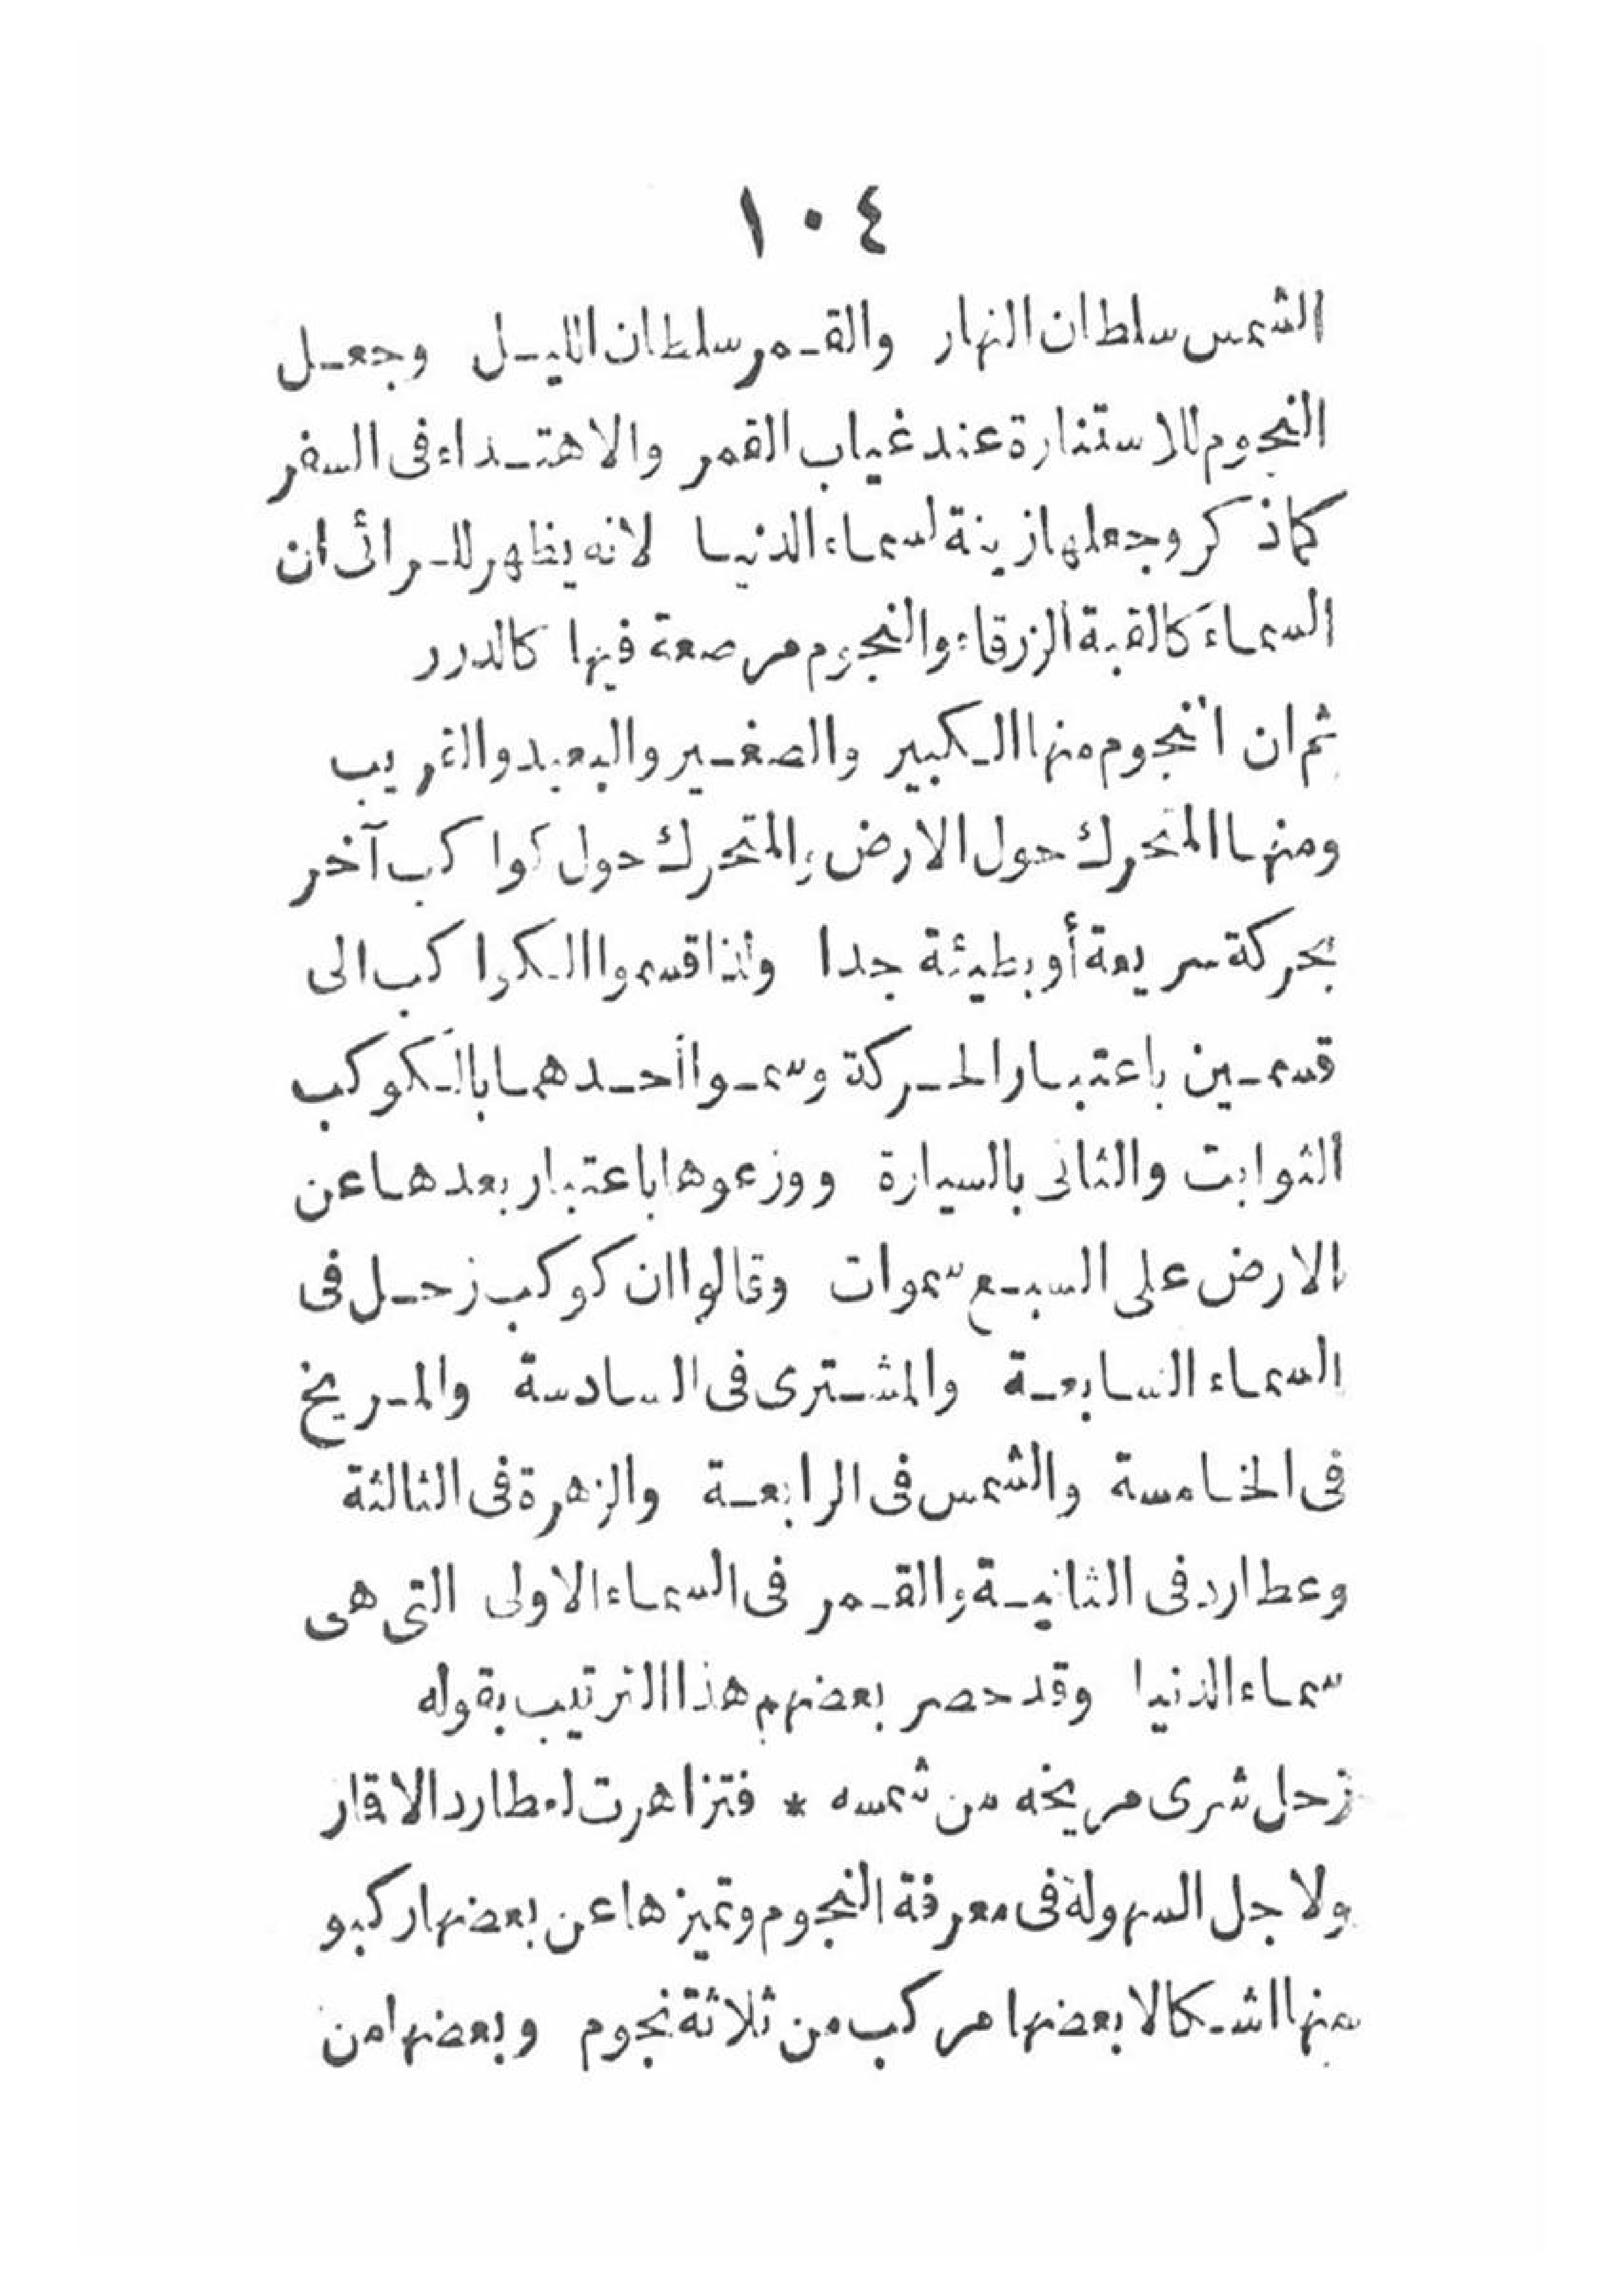 ١٠٤
الشمس سلطان النهار والقمر سلطان الليل وجعل
النجوم للاستنارة عند غياب القمر والاهتداء فى السفر
كما ذكر وجعلها زينة لسماء الدنيا لانه يظهر للرائى ان
السماء كالقبة الزرقاء والنجوم مرصعة فيها كالدرر
ثم ان النجوم منها الكبير والصغير والبعيد والقريب
ومنها المتحرك حول الارض والمتحرك حول كواكب آخر
بحركة سريعة أو بطيئة جدا ولذا قسموا الكواكب الى
قسمين باعتبار الحركة وسموا أحدهما بالكوكب
الثوابت والثانى بالسيارة ووزعوها باعتبار بعدها عن
الارض على السبع سموات وقالوا ان كوكب زحل فى
السماء السابعة والمشترى فى السادسة والمريخ
فى الخامسة والشمس فى الرابعة والزهرة فى الثالثة
وعطارد فى الثانية والقمر فى السماء الاولى التى هى
سماء الدنيا وقد حصر بعضهم هذا الترتيب بقوله
زحل شرى مريخه من شمسه * فتزاهرت لعطارد الاقمار
ولاجل السهولة فى معرفة النجوم وتميزها عن بعضها ركبو
منها اشكالا بعضها مركب من ثلاثة نجوم وبعضها من